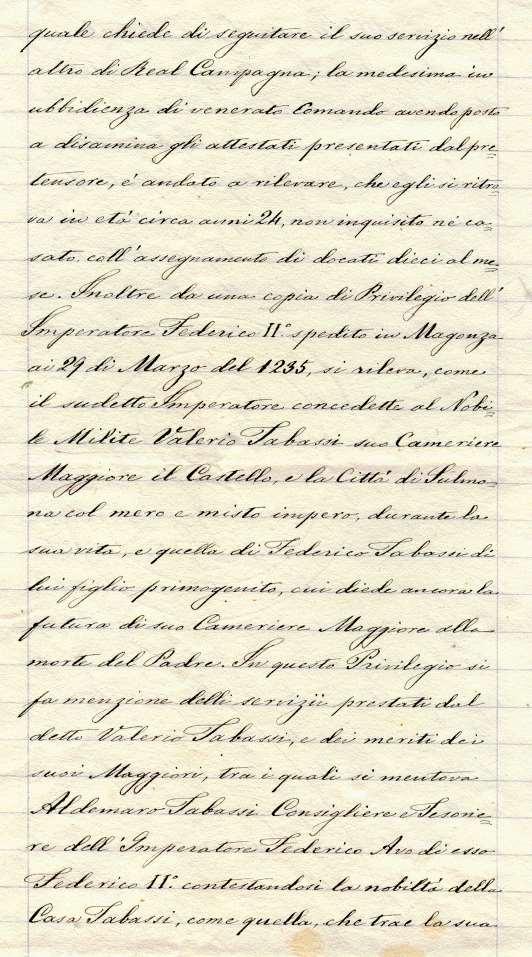 quale chiede di seguitare il suo servizio nell'
altro di Real Campagna; la medesima in
ubbidienza di venerato Comando avendo posto
a disamina gli attestati presentati dal pre=
tensore, é andato a rilevare, che egli si ritro=
va in etá circa anni 24, non inquisito né ca=
sato. coll'assegnamento di docati dieci al me=
se. Inoltre da una copia di Privilegio dell'
Imperatore Federico II.º spedito in Magonza
ai 29 di Marzo del 1235, si rileva, come
il sudetto Imperatore concedette al Nobi=
le Milite Valerio Tabassi suo Cameriere
Maggiore il Castello, e la Cittá di Sulmo=
na col mero e misto impero, durante la
sua vita, e quella di Federico Tabassi di
lui figlio primogenito, cui diede ancora la
futura di suo Cameriere Maggiore alla
morte del Padre. In questo Privilegio si
fa menzione delli servizii prestati dal
detto Valerio Tabassi, e dei meriti dei
suoi Maggiori, tra i quali si mentova
Aldemaro Tabassi Consigliere e Tesorie=
re dell'Imperatore Federico Avo di esso
Federico II.º contestandosi la nobiltá della
Casa Tabassi, come quella, che trae la sua